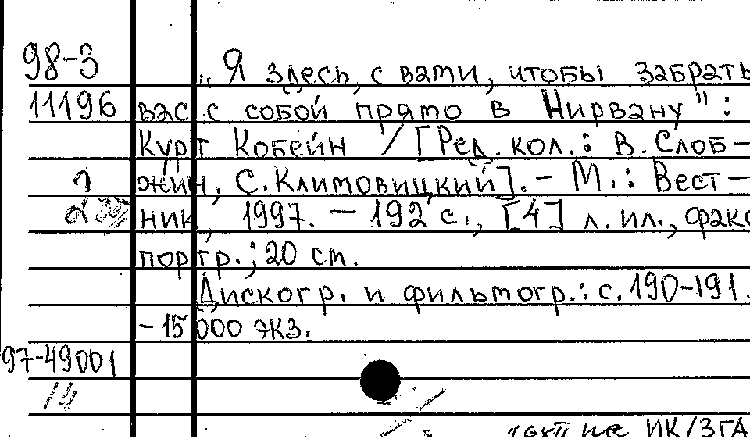 98-3
„Я здесь, с вами, чтобы забрать
11196 вас с собой прямо в Нирвану":
Курт Кобейн / [Ред. кол.: В. Слоб-
жин, С. Климовицкий]. - М.: Вест-
ник, 1997. - 192 с., [4] л. ил., факс
портр.; 20 см.
Дискогр. и фильмогр.: с. 190-191.
- 15 000 экз.
97-49001
ИК/ЗГА